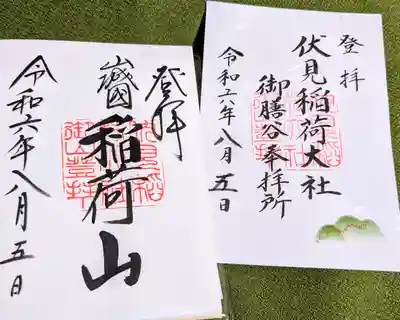 登拝
伏見稲荷大社
御膳谷奉拝所
令和六年八月五日
登拝
稲荷山
令和六年八月五日